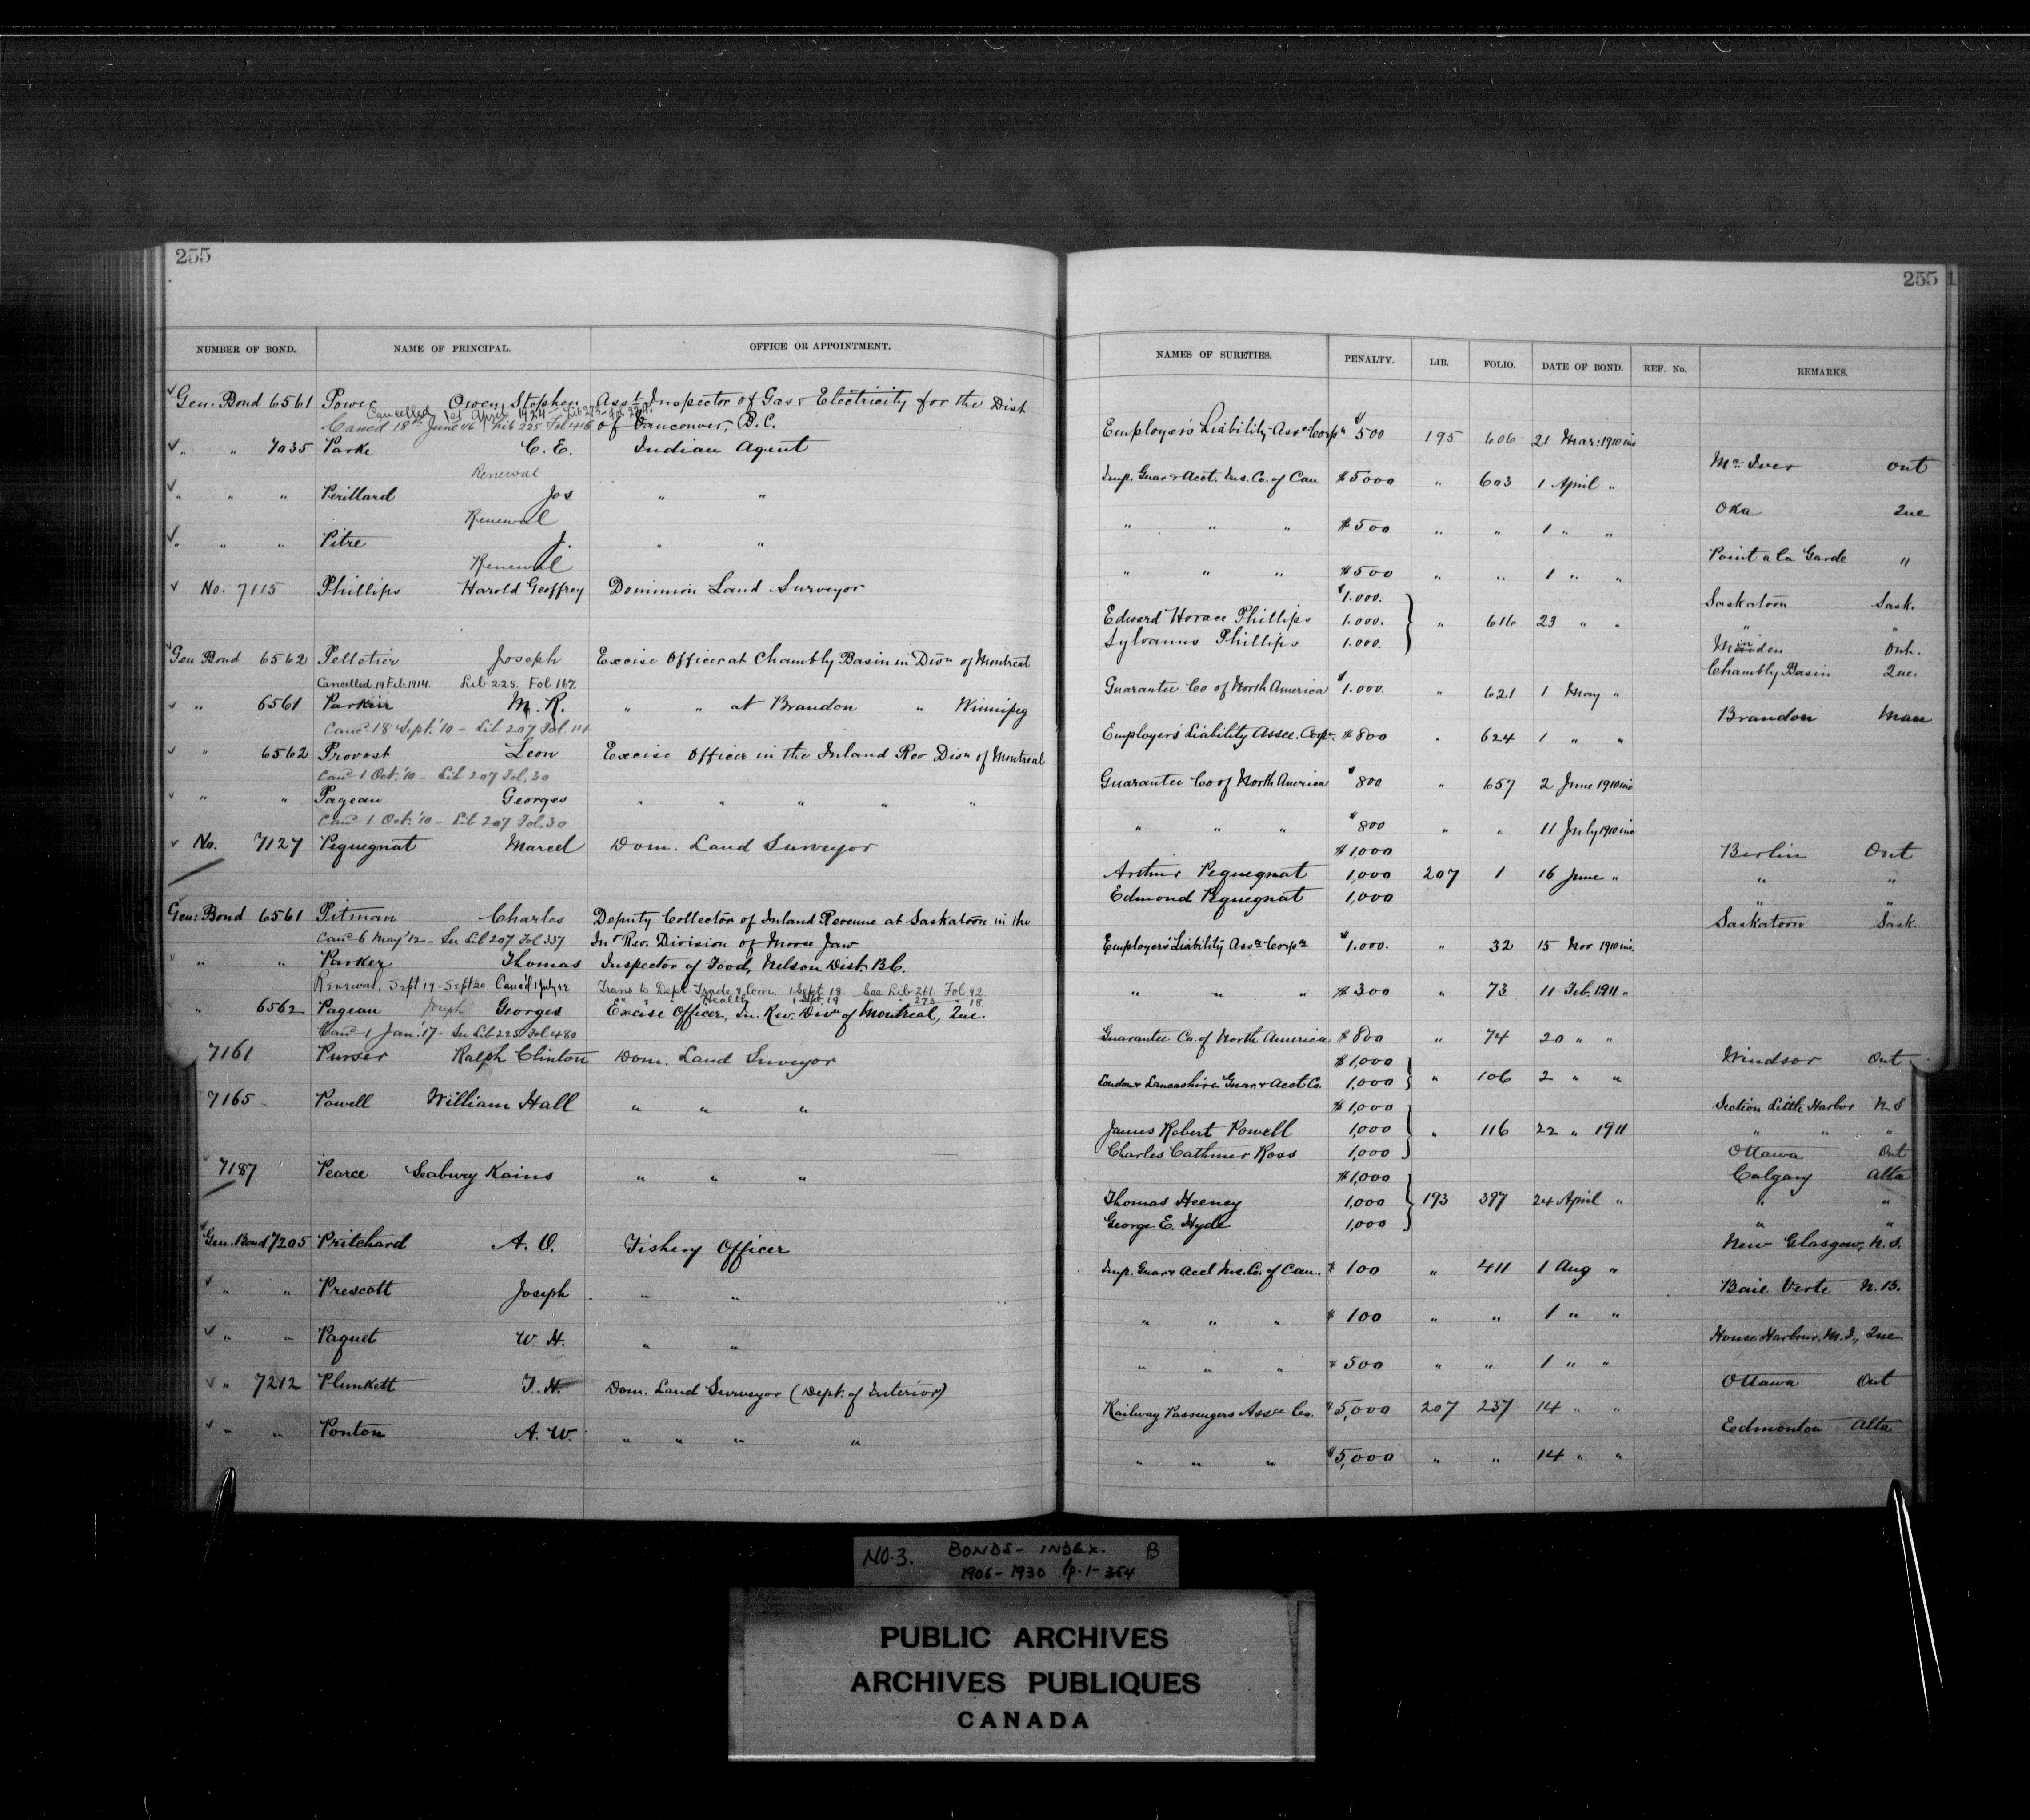 255
255 1
NUMBER OF BOND. NAME OF PRINCIPAL. OFFICE OR APPOINTMENT. NAMES OF SURETIES. PENALTY. LIB. FOLIO. DATE OF BOND. REF. No. REMARKS.
Gen. Bond 6561 Power Owen Stephen Asst Inspector of Gas & Electricity for the Dist
Cancelled 1st April 1924
Canc'd 18th June '16 Lib 225 Fol 416 of Vancouver, B.C. Employers Liability Assce Corpn $500 195 606 21 Mar: 1910
" " 7035 Parke C. E. Indian Agent McIver Ont
Renewal Imp. Guar & Acct. Ins. Co. of Can $5000 " 603 1 April "
" " " Perillard Jos " " Oka Que
Renewal " " " $500 " " 1 " "
" " " Pitre J. " " Point a la Garde "
Renewal " " " $500 " " 1 " "
No. 7115 Phillips Harold Geoffrey Dominion Land Surveyor $1.000. Saskatoon Sask.
Edward Horace Phillips 1.000. " 616 23 " " " "
Sylvanus Phillips 1.000. Minden Ont.
Gen Bond 6562 Pelletier Joseph Excise Officer at Chambly Basin in Divn of Montreal Chambly Basin Que.
Cancelled 19 Feb. 1914. Lib 225. Fol 167. Guarantee Co of North America $1.000. " 621 1 May "
" 6561 Parkin M. R. " " at Brandon " Winnipeg Brandon Man
Cancd 18 Sept. '10 - Lib 207 Fol. 14 Employers' Liability Assce. Corpn. $800 " 624 1 " "
" 6562 Provost Leon Excise Officer in the Inland Rev Divn of Montreal
Cancd 1 Oct. '10 - Lib 207 Fol. 30 Guarantee Co of North America $800 " 657 2 June 1910
" " Pageau Georges " " " " "
Cancd 1 Oct. '10 - Lib 207 Fol. 30 " " " $800 " " 11 July 1910
No. 7127 Pequegnat Marcel Dom. Land Surveyor $1,000 Berlin Ont
Arthur Pequegnat 1,000 207 1 16 June " " "
Edmond Pequegnat 1,000 " "
Gen: Bond 6561 Pitman Charles Deputy Collector of Inland Revenue at Saskatoon in the Saskatoon Sask.
Cancd 6 May '12 - See Lib 207 Fol 337 Ind Rev. Division of Moose Jaw Employers' Liability Assce Corpn $1.000. " 32 15 Nov 1910
" " Parker Thomas Inspector of Food, Nelson Dist. B.C.
Renewal, Sept 19 - Sept 20. Canc'd 1 July 22 Trans to Dept Trade & Com. 1 Sept 18 See Lib 261. Fol 92 " " " $300 " 73 11 Feb. 1911 "
" " Health 1 Sept. 19 " 273 " 18
" 6562 Pageau Joseph Georges Excise Officer, In. Rev. Divn of Montreal, Que.
Cancd 1 Jan. '17 - See Lib 225 Fol 480 Guarantee Co. of North America $800 " 74 20 " "
7161 Purser Ralph Clinton Dom. Land Surveyor $1,000 Windsor Ont
London & Lancashire Guar. & Acct Co. 1,000 " 106 2 " "
7165 Powell William Hall " " " $1,000 Section Little Harbor N.S
James Robert Powell 1,000 " 116 22 " 1911 " " "
Charles Cathmer Ross 1,000 Ottawa Ont
7187 Pearce Seabury Kains " " " $1,000 Calgary Alta
Thomas Heeney 1,000 193 397 24 April " " "
George E. Hyde 1,000 " "
Gen. Bond 7205 Pritchard A. O. Fishery Officer New Glasgow, N.S.
Imp. Guar & Acct Ins. Co. of Can. $100 " 411 1 Aug "
" " Prescott Joseph " " Baie Verte N.B.
" " " $100 " " 1 " "
" " Paquet W. H. " " House Harbour, M.I., Que
" " " $500 " " 1 " "
" 7212 Plunkett T. H. Dom. Land Surveyor (Dept. of Interior) Ottawa Ont
Railway Passengers Assce Co. $5,000 207 237 14 " "
" " Ponton A. W. " " " " Edmonton Alta
" " " $5,000 " " 14 " "
NO. 3. BONDS - INDEX. B
1906 - 1930 p. 1 - 354
PUBLIC ARCHIVES
ARCHIVES PUBLIQUES
CANADA